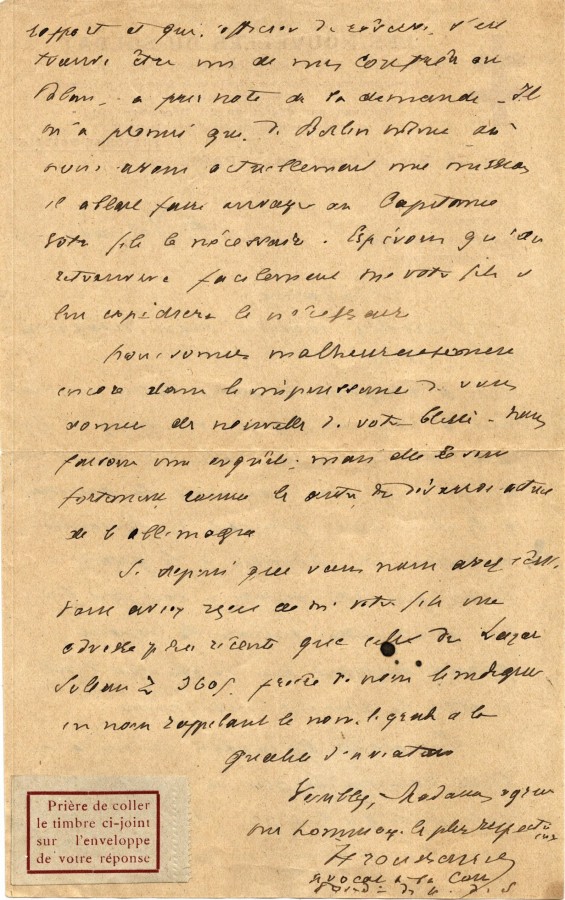 rapport et qui, officier de réserve, s'est
trouvé être un de mes confrères au
Palais, a pris note de la demande. Il
m'a promis que de Berlin même où
nous avons actuellement une mission
il allait faire envoyer au Capitaine
votre fils le nécessaire. Espérons qu'on
retrouvera facilement votre fils
lui expédiera le nécessaire
Nous sommes malheureusement
encore dans l'impuissance de vous
donner des nouvelles de votre blessé. Nous
faisons une enquête. mais elle
fortement comme le
de l'Allemagne
Si depuis que vous nous avez
vous aviez reçu de votre fils une
adresse plus récente que celle du Lazar
Sulian Z 3605. prière de nous l'indiquer
en nous rappelant le nom, le grade et la
qualité d'aviateur
Veuillez, Madame, agréer
mes hommages les plus respectueux
avocat à la Cour
Prière de coller
le timbre ci-joint
sur l'enveloppe
de votre réponse